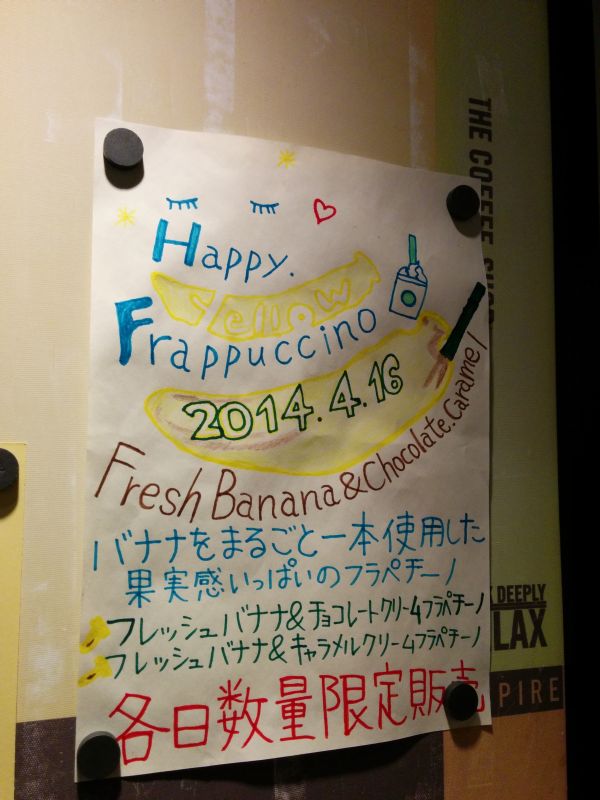 Happy.
Fellow
Frappuccino
2014.4.16
Fresh Banana & Chocolate.Caramel
バナナをまるごと一本使用した
果実感いっぱいのフラペチーノ
フレッシュバナナ&チョコレートクリームフラペチーノ
フレッシュバナナ&キャラメルクリームフラペチーノ
各日数量限定販売
THE COFFEE SHOP
DEEPLY
LAX
PIRE